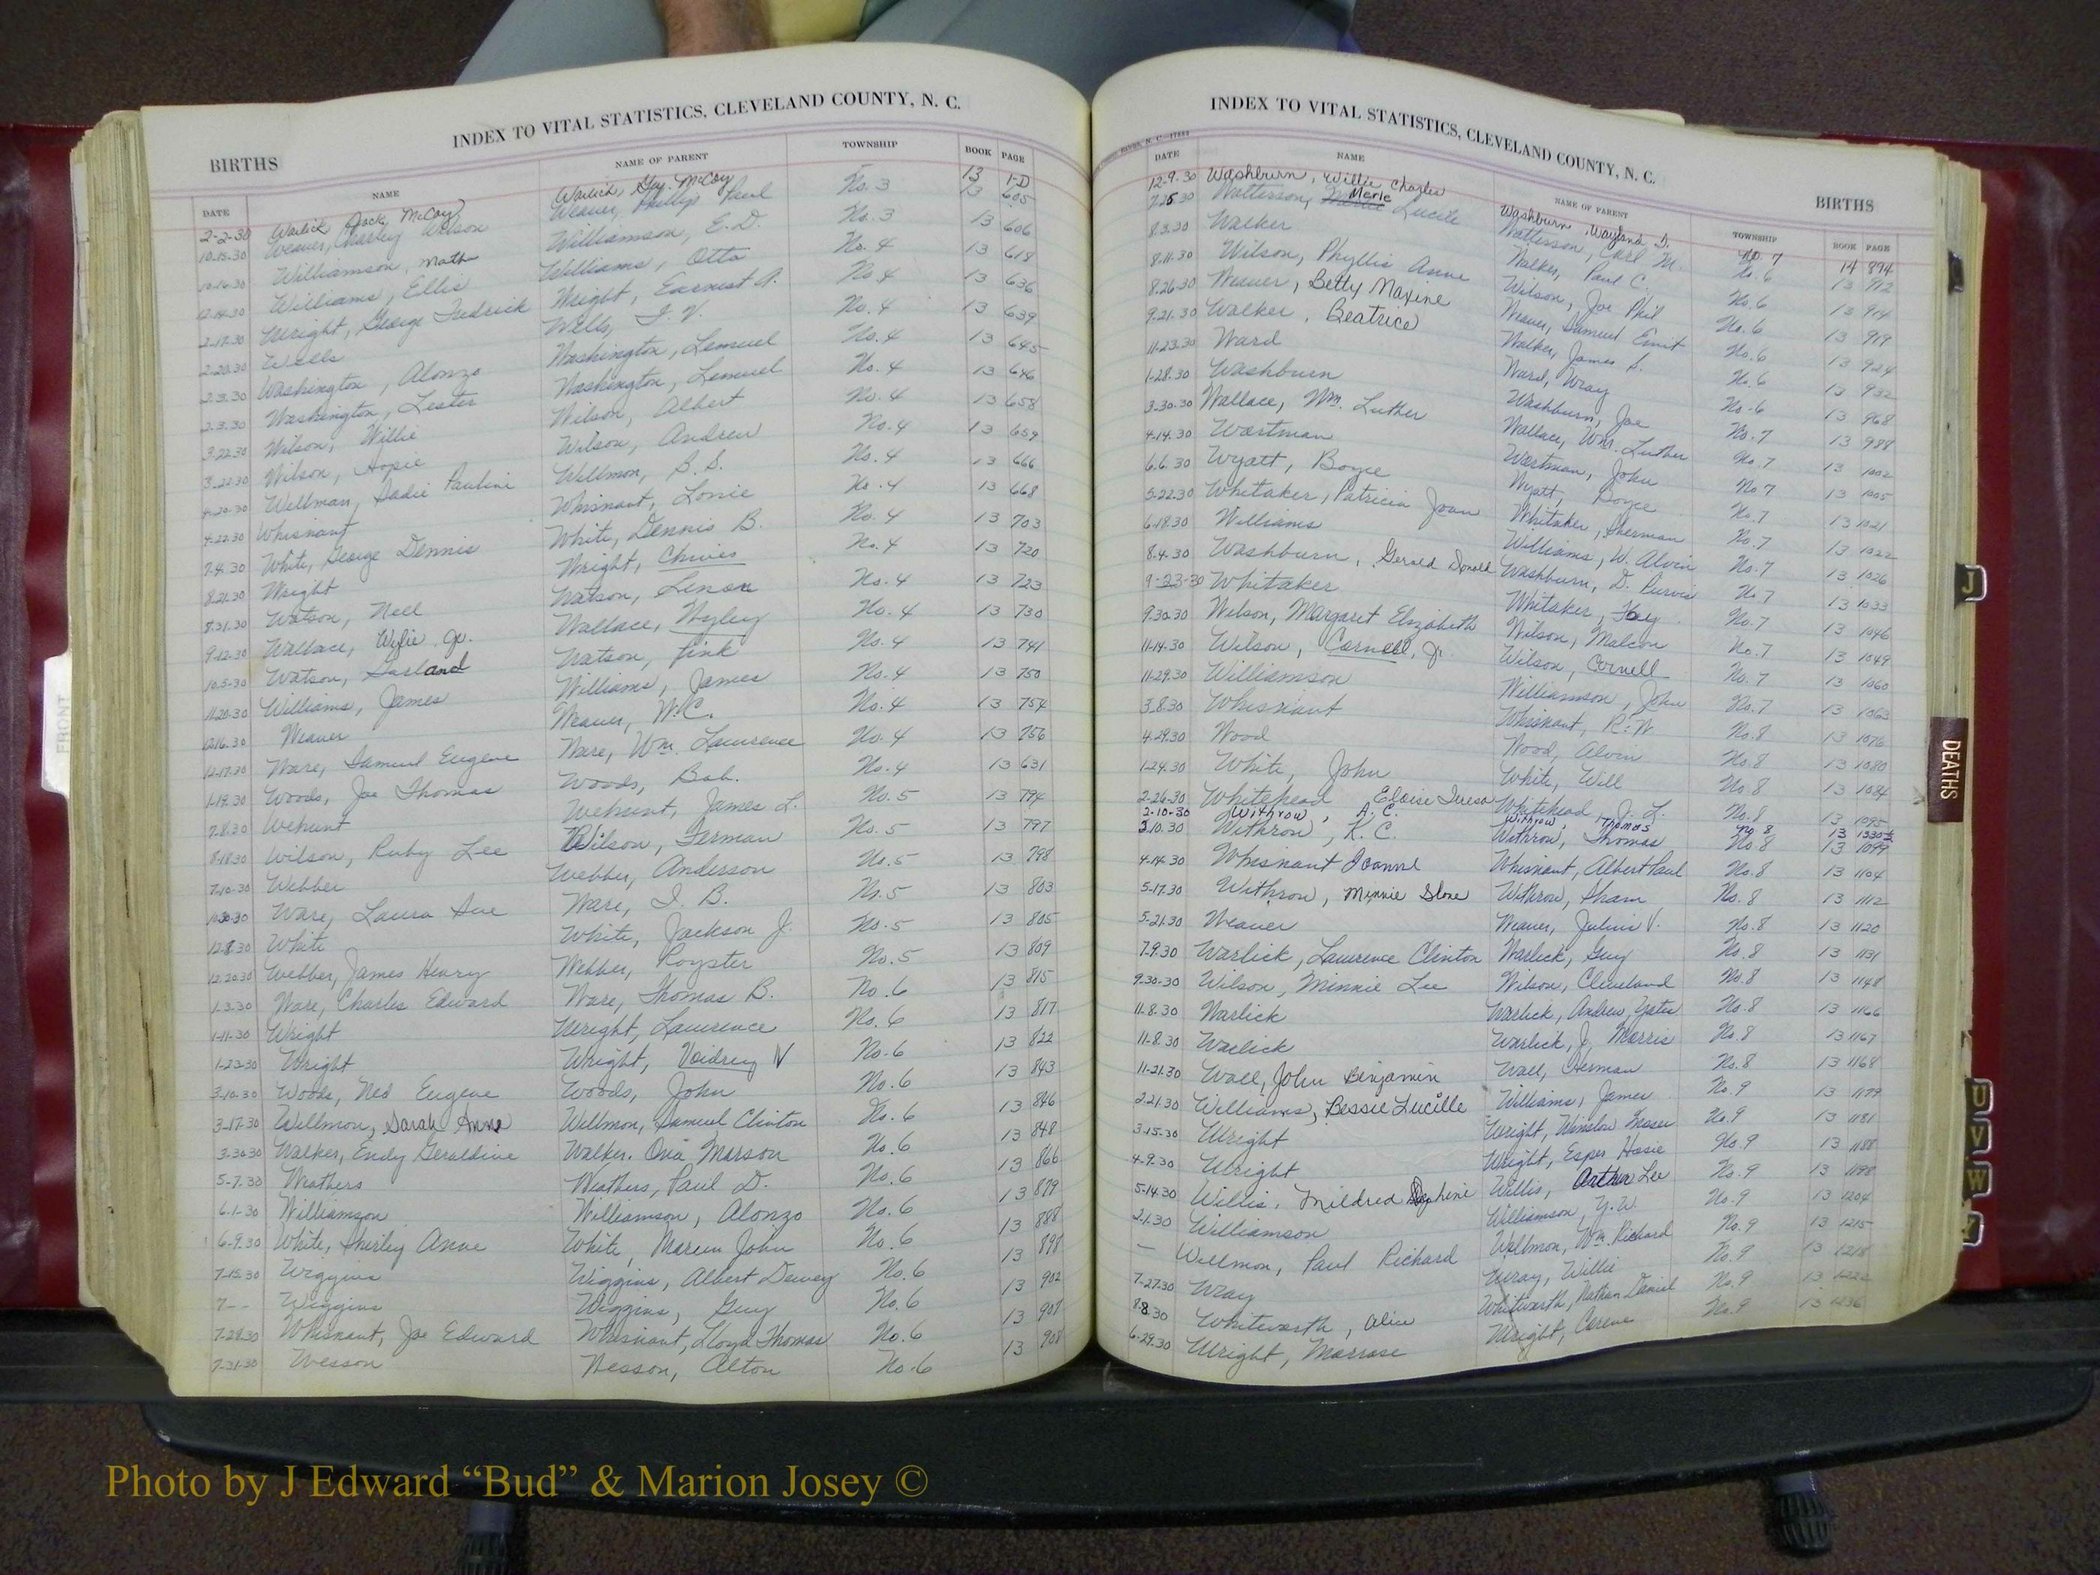 INDEX TO VITAL STATISTICS, CLEVELAND COUNTY, N. C.
BIRTHS
DATE NAME NAME OF PARENT TOWNSHIP BOOK PAGE
2-2-30 Warlick, Jack McCoy Warlick, Guy McCoy 13 1-D
10-15-30 Weaver, Charley Wilson Weaver, Phillip Paul No. 3 13 605
10-16-30 Williamson, Williamson, E.D. No. 3 13 606
12-14-30 Williams, Ellis Williams, Otto No. 4 13 618
2-17-30 Wright, George Fredrick Wright, Earnest A. No. 4 13 636
2-20-30 Wells Wells, No. 4 13 639
2-3-30 Washington, Alonzo Washington, Lemuel No. 4 13 645
2-3-30 Washington, Lester Washington, Lemuel No. 4 13 646
3-22-30 Wilson, Willie Wilson, Albert No. 4 13 658
3-22-30 Wilson, Wilson, Andrew No. 4 13 659
4-20-30 Willman, Sadie Pauline Wellmon, No. 4 13 666
4-22-30 Whisnant Whisnant, Lonie No. 4 13 668
7-4-30 White, George Dennis White, Dennis B. No. 4 13 703
8-21-30 Wright Wright, Chivies No. 4 13 720
8-31-30 Watson, Nell Watson, No. 4 13 723
9-12-30 Wallace, Wylie Jr. Wallace, Wyley No. 4 13 730
10-5-30 Watson, Garland Watson, Pink No. 4 13 741
11-20-30 Williams, James Williams, James No. 4 13 750
12-16-30 Weaver Weaver, W.C. No. 4 13 754
12-17-30 Ware, Samuel Eugene Ware, Wm. Lawrence No. 4 13 756
1-19-30 Woods, Joe Thomas Woods, Bob. No. 4 13 631
7-8-30 Wehunt Wehunt, James L. No. 5 13 794
8-18-30 Wilson, Ruby Lee Wilson, Ferman No. 5 13 797
7-10-30 Webber Webber, Anderson No. 5 13 798
10-30-30 Ware, Laura Sue Ware, I. B. No. 5 13 803
12-8-30 White White, Jackson J. No. 5 13 805
12-20-30 Webber, James Henry Webber, Royster No. 5 13 809
1-3-30 Ware, Charles Edward Ware, Thomas B. No. 6 13 815
1-11-30 Wright Wright, Lawrence No. 6 13 817
1-23-30 Wright Wright, V No. 6 13 822
3-10-30 Woods, Ned Eugene Woods, John No. 6 13 843
3-17-30 Wellmon, Sarah Anna Wellmon, Samuel Clinton No. 6 13 846
3-30-30 Walker, Emily Geraldine Walker. Ovia Marson No. 6 13 848
5-7-30 Weathers Weathers, Paul D. No. 6 13 866
6-1-30 Williamson Williamson, Alonzo No. 6 13 879
6-9-30 White, Shirley Anne White, John No. 6 13 888
7-15-30 Wiggins Wiggins, Albert Dewey No. 6 13 898
7-- Wiggins Wiggins, Guy No. 6 13 902
7-28-30 Whisnant, Joe Edward Whisnant, Lloyd Thomas No. 6 13 907
7-31-30 Wesson Wesson, Alton No. 6 13 908
INDEX TO VITAL STATISTICS, CLEVELAND COUNTY, N. C.
BIRTHS
DATE NAME NAME OF PARENT TOWNSHIP BOOK PAGE
12-9-30 Washburn, Willie Charles Washburn, Wayland D. No. 7 14 894
7-25-30 Watterson, Merle Lucile Watterson, Carl M. No. 6 13 912
8-3-30 Walker Walker, Paul C. No. 6 13 914
8-11-30 Wilson, Phyllis Anne Wilson, Joe Phil No. 6 13 919
8-26-30 Weaver, Betty Maxine Weaver, Samuel Ernst No. 6 13 924
9-21-30 Walker, Beatrice Walker, James S. No. 6 13 932
11-23-30 Ward Ward, Wray No. 6 13 968
1-28-30 Washburn Washburn, Joe No. 7 13 988
3-30-30 Wallace, Wm. Luther Wallace, Wm. Luther No. 7 13 1002
4-14-30 Wortman Wortman, John No 7 13 1005
6-6-30 Wyatt, Boyce Wyatt, Boyce No. 7 13 1021
5-22-30 Whitaker, Patricia Joan Whitaker, Sherman No. 7 13 1022
6-18-30 Williams Williams, W. Alvin No. 7 13 1026
8-4-30 Washburn, Gerald Donald Washburn, D. Purvis No 7 13 1033
9-23-30 Whitaker Whitaker, Foy No. 7 13 1046
9-30-30 Wilson, Margaret Elizabeth Wilson, Malcon No. 7 13 1049
11-14-30 Wilson, Cornell, Jr. Wilson, Cornell No. 7 13 1060
11-29-30 Williamson Williamson, John No. 7 13 1063
3-8-30 Whisnant Whisnant, R. W. No. 8 13 1076
4-29-30 Wood Wood, Alvin No. 8 13 1080
1-24-30 White, John White, Will No. 8 13 1084
2-26-30 Whitehead Eloise Whitehead, J. L. No. 8 13 1095
2-10-30 Withrow, A. C. Withrow Thomas No 8 13 1330½
3-10-30 Withrow, K. C. Withrow, Thomas No. 8 13 1099
4-14-30 Whisnant Joanne Whisnant, Albert Paul No. 8 13 1104
5-17-30 Withrow, Minnie Slone Withrow, Sham No. 8 13 1112
5-21-30 Weaver Weaver, Julius V. No. 8 13 1120
7-9-30 Warlick, Lawrence Clinton Warlick, Guy No. 8 13 1131
9-30-30 Wilson, Minnie Lee Wilson, Cleveland No. 8 13 1148
11-8-30 Warlick Warlick, Andrew Yates No. 8 13 1166
11-8-30 Warlick Warlick, J. Morris No. 8 13 1167
11-21-30 Wall, John Benjamin Wall, Herman No. 8 13 1168
2-21-30 Williams, Bessie Lucille Williams, James No. 9 13 1179
3-15-30 Wright Wright, Winslow No. 9 13 1181
4-9-30 Wright Wright, Esper Hosie No. 9 13 1188
5-14-30 Willis, Mildred Daphine Willis, Arthur Lee No. 9 13 1198
2-1-30 Williamson Williamson, Y. W. No. 9 13 1204
— Wellmon, Paul Richard Wellmon, Wm. Richard No. 9 13 1215
7-27-30 Wray Wray, Willie No. 9 13 1218
8-8-30 Whitworth, Alice Whitworth, Nathan Daniel No. 9 13 1222
6-29-30 Wright, Wright, No. 9 13 1236
FRONT
J
DEATHS
U
V
W
Y
Photo by J Edward “Bud” & Marion Josey ©